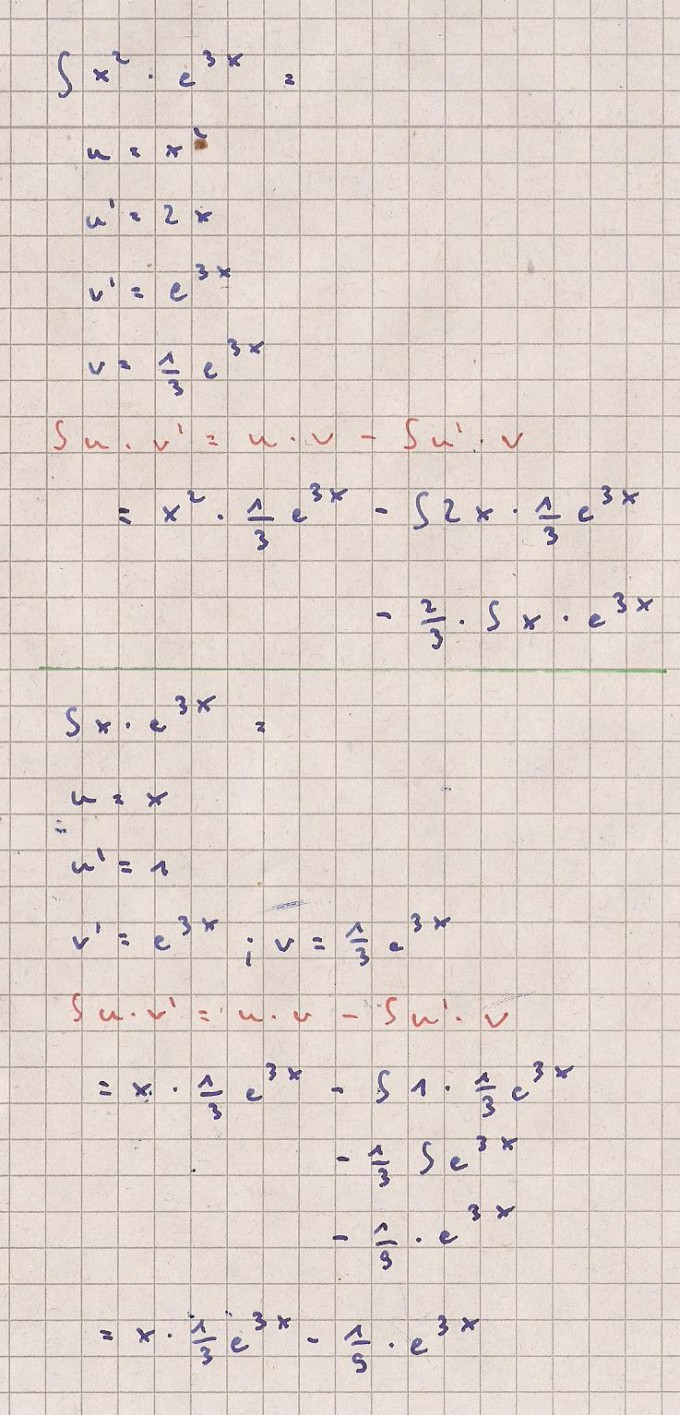 ∫ x² · e^{3x} =
u = x²
u' = 2x
v' = e^{3x}
v = 1/3 e^{3x}
∫u · v' = u · v - ∫u' · v
= x² · 1/3 e^{3x} - ∫2x · 1/3 e^{3x}
- 2/3 · ∫ x · e^{3x}
∫x · e^{3x} =
u = x
u' = 1
v' = e^{3x} ; v = 1/3 e^{3x}
∫u · v' = u · v - ∫u' · v
= x · 1/3 e^{3x} - ∫1 · 1/3 e^{3x}
- 1/3 ∫e^{3x}
- 1/9 · e^{3x}
= x · 1/3 e^{3x} - 1/9 · e^{3x}